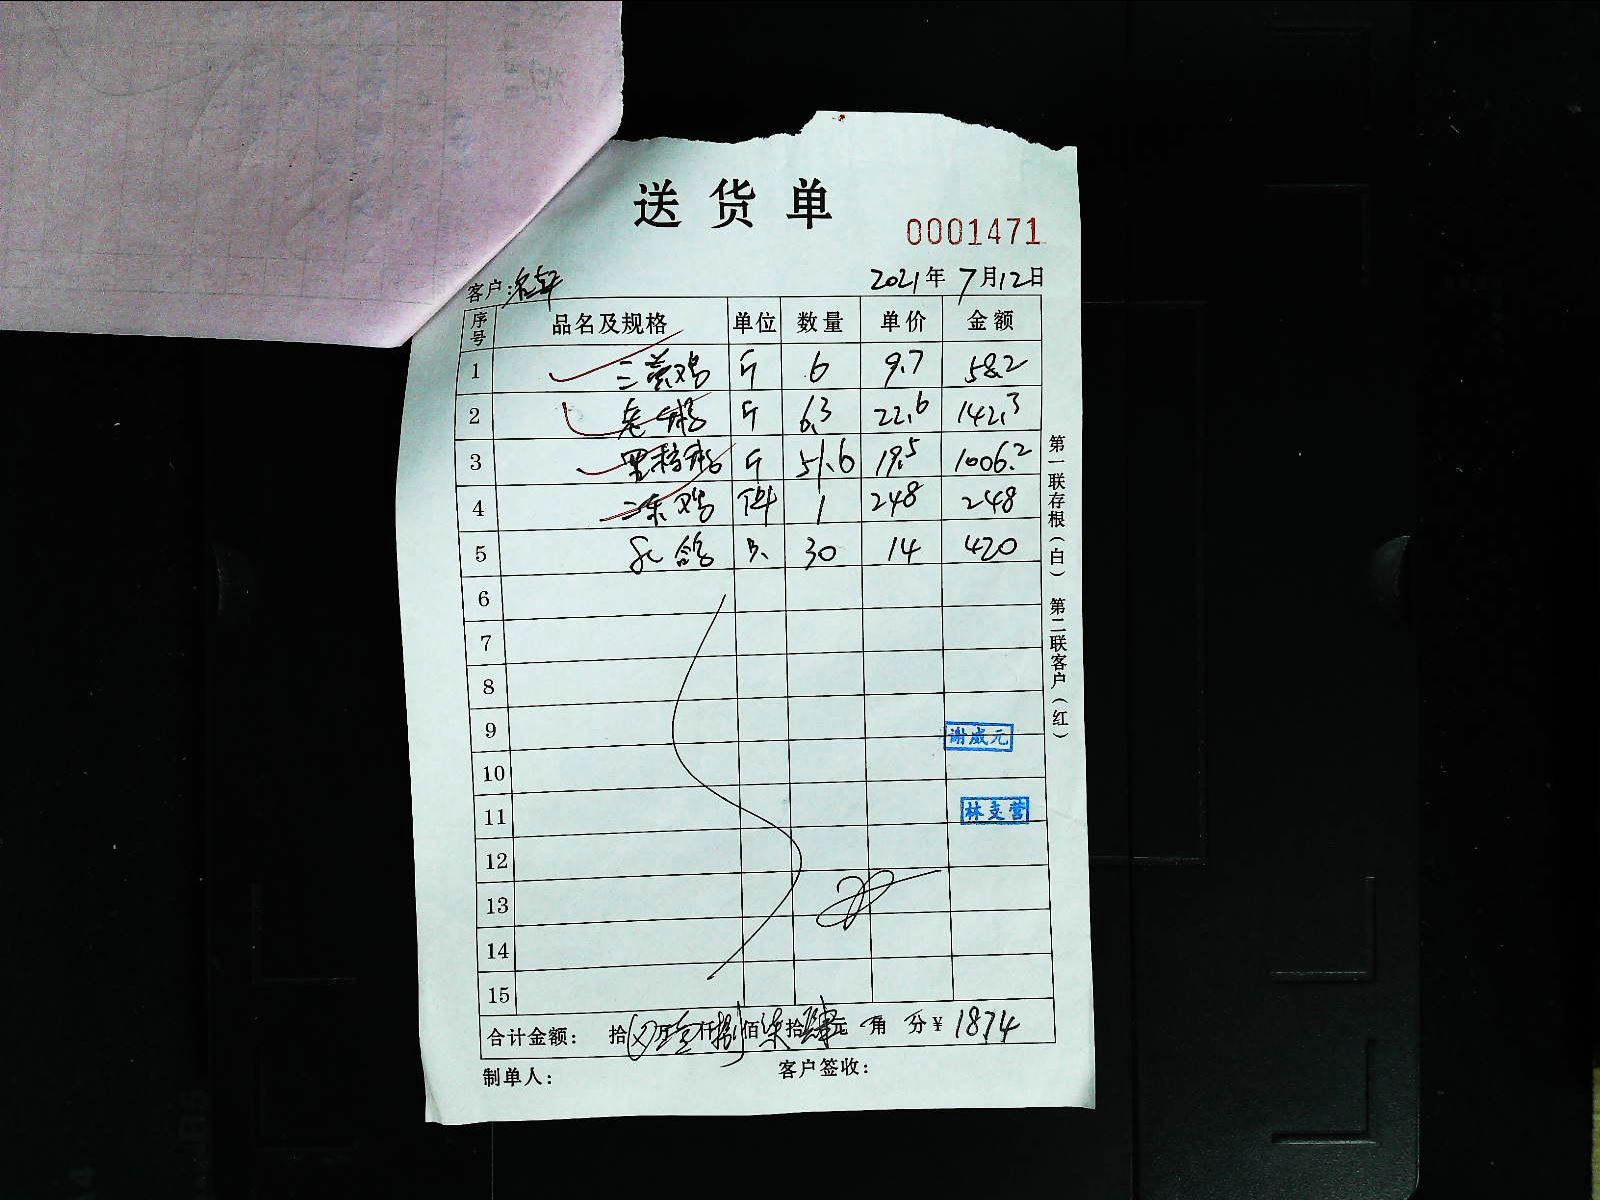 送货单
0001471
客户：名轩 2021年7月12日
序号 品名及规格 单位 数量 单价 金额
1 三黄鸡 斤 6 9.7 58.2
2 老鸭 斤 6.3 22.6 142.3
3 斤 51.6 19.5 1006.2
4 二冻鸡 件 1 248 248
5 乳鸽 只 30 14 420
6
7
8
9
谢咸元
10
11
林支营
12
13
14
15
合计金额： 拾 万壹仟捌佰柒拾肆元 角 分¥ 1874
制单人： 客户签收：
第一联存根（白） 第二联客户（红）